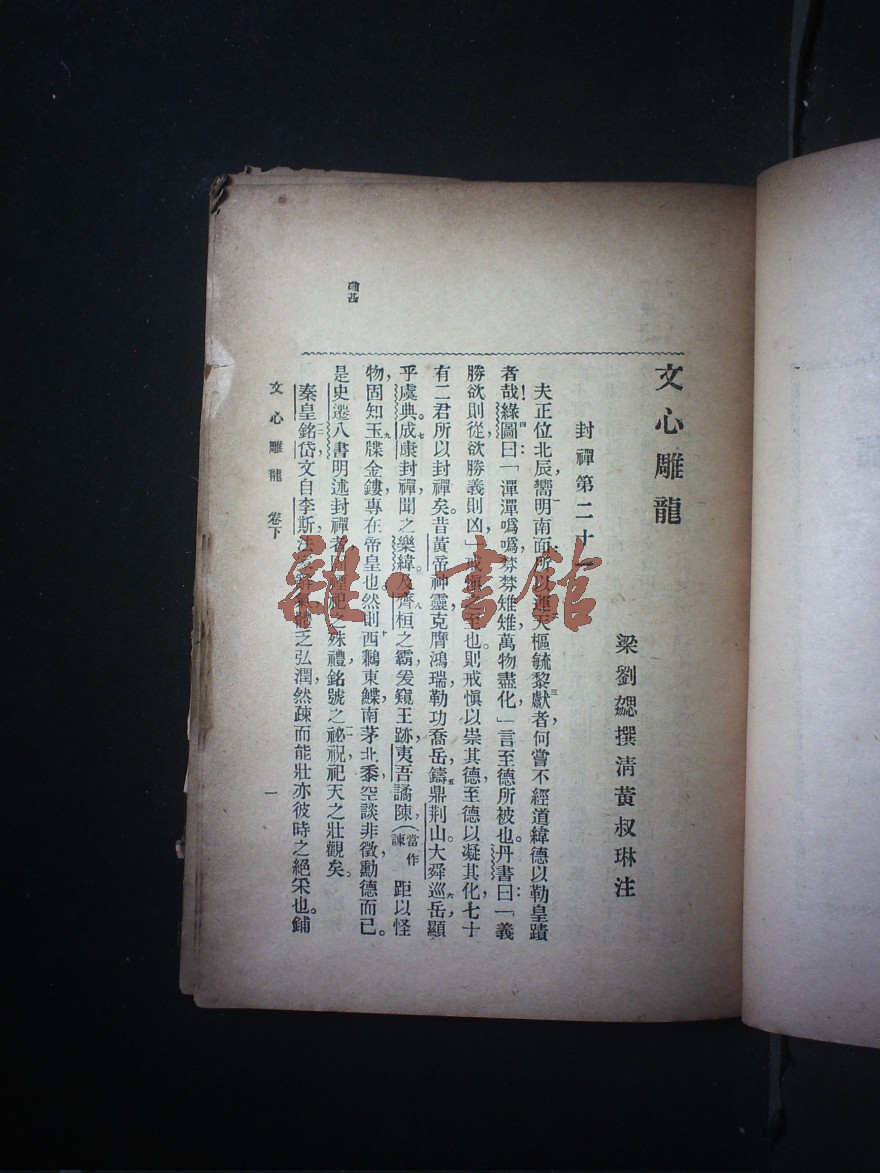 文心雕龍
梁劉勰撰淸黃叔琳注
封禪第二十一
夫正位北辰，嚮明南面，所以運天樞，毓黎獻者，何嘗不經道緯德，以勒皇蹟
者哉！綠圖曰：「潬潬噅噅，棼棼雉雉，萬物盡化」言至德所被也。丹書曰：「義
勝欲則從，欲勝義則凶」戒愼之至也。則戒愼以崇其德，至德以凝其化，七十
有二君，所以封禪矣。昔黃帝神靈，克膺鴻瑞，勒功喬岳，鑄鼎荆山。大舜巡岳，顯
乎虞典。成康封禪，聞之樂緯。及齊桓之霸，爰窺王跡，夷吾譎陳，（當作諫）距以怪
物。固知玉牒金鏤，專在帝皇也。然則西鶼東鰈，南茅北黍，空談非徵，勳德而已。
是史遷八書，明述封禪者，固禋祀之殊禮，銘號之祕祝，祀天之壯觀矣。
秦皇銘岱，文自李斯，法家辭氣，體乏弘潤，然疎而能壯，亦彼時之絕采也。鋪
文心雕龍 卷下
一
雜·書館